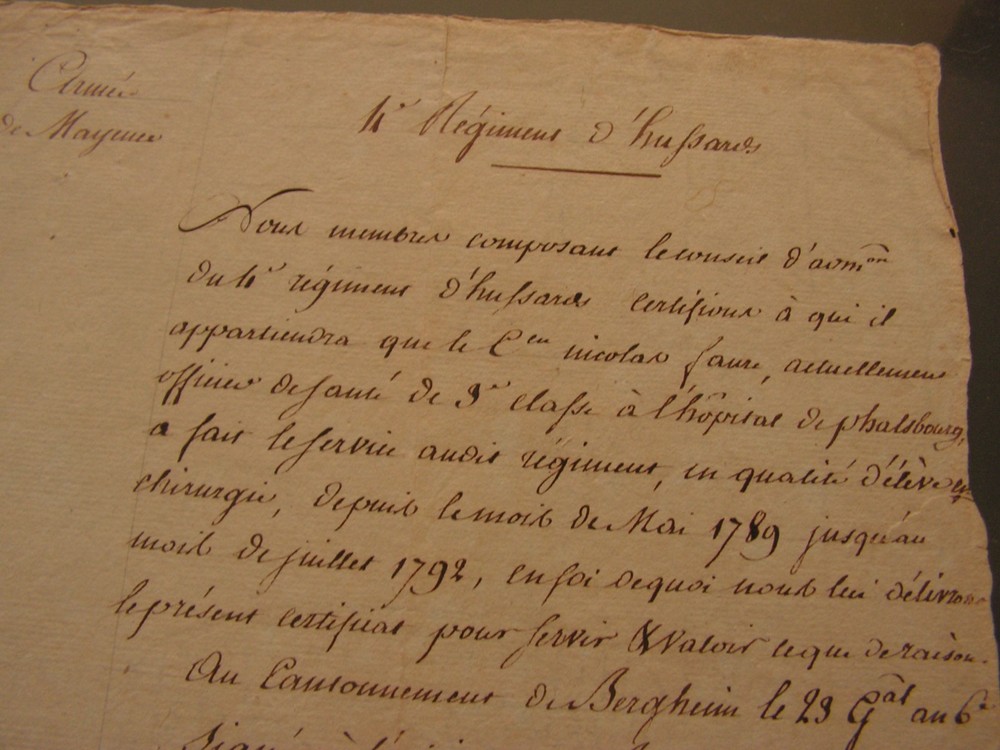 Armée
de Mayence
4e Régiment d'hussards
Nous membres composant le conseil d'adm.on
du 4e régiment d'hussards certifions à qui il
appartiendra que le C.en nicolas faure, actuellement
officier de santé de 3e classe à l'hôpital de phalsbourg,
a fait le service audit régiment, en qualité d'élève en
chirurgie, depuis le mois de Mai 1789 jusqu'au
mois de juillet 1792, en foi de quoi nous lui délivrons
le présent certificat pour servir & valoir ce que de raison.
Au Cantonnement de Bergheim le 23 G.al an 6e
Signé à l'